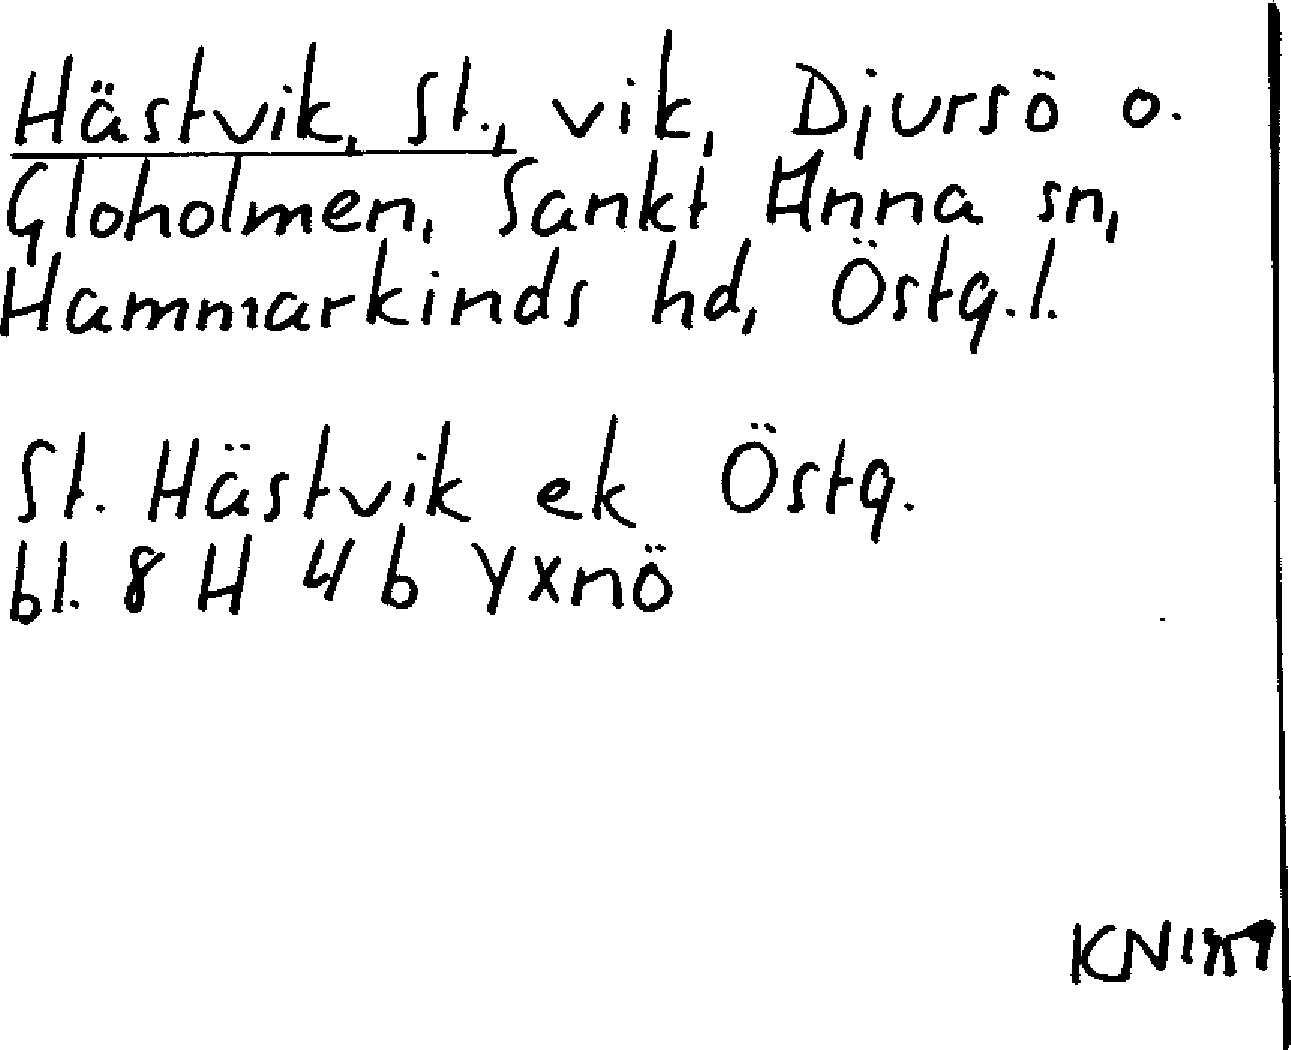 Hästvik, St., vik, Djursö o.
Gloholmen, Sankt Anna sn,
Hammarkinds hd, Östg.l.
St. Hästvik ek Östg.
bl. 8 H 4 b Yxnö